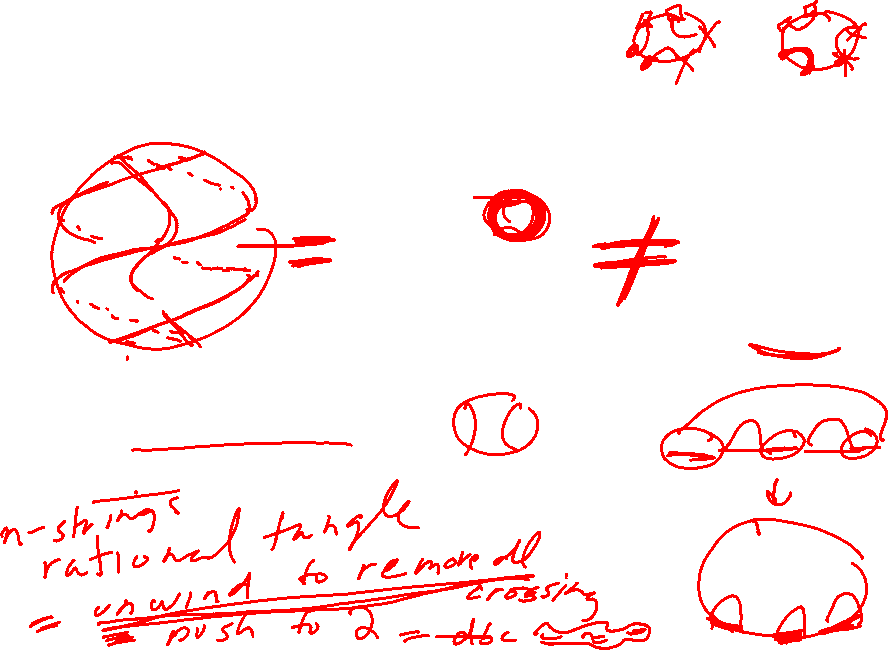 = ≠
n-strings
rational tangle
= unwind to remove all
crossing
push to 2 = dbc